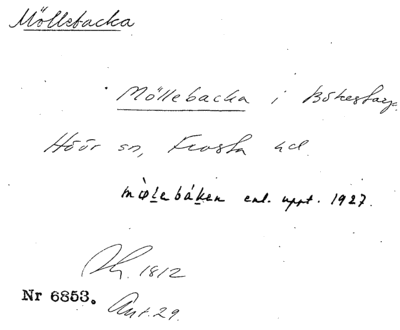 Möllebacka
Möllebacka i Bökestorp
Höör sn, Frosta hd.
møḷebáḳen enl. uppt. 1927.
1812
Nr 6853. Ant. 29.